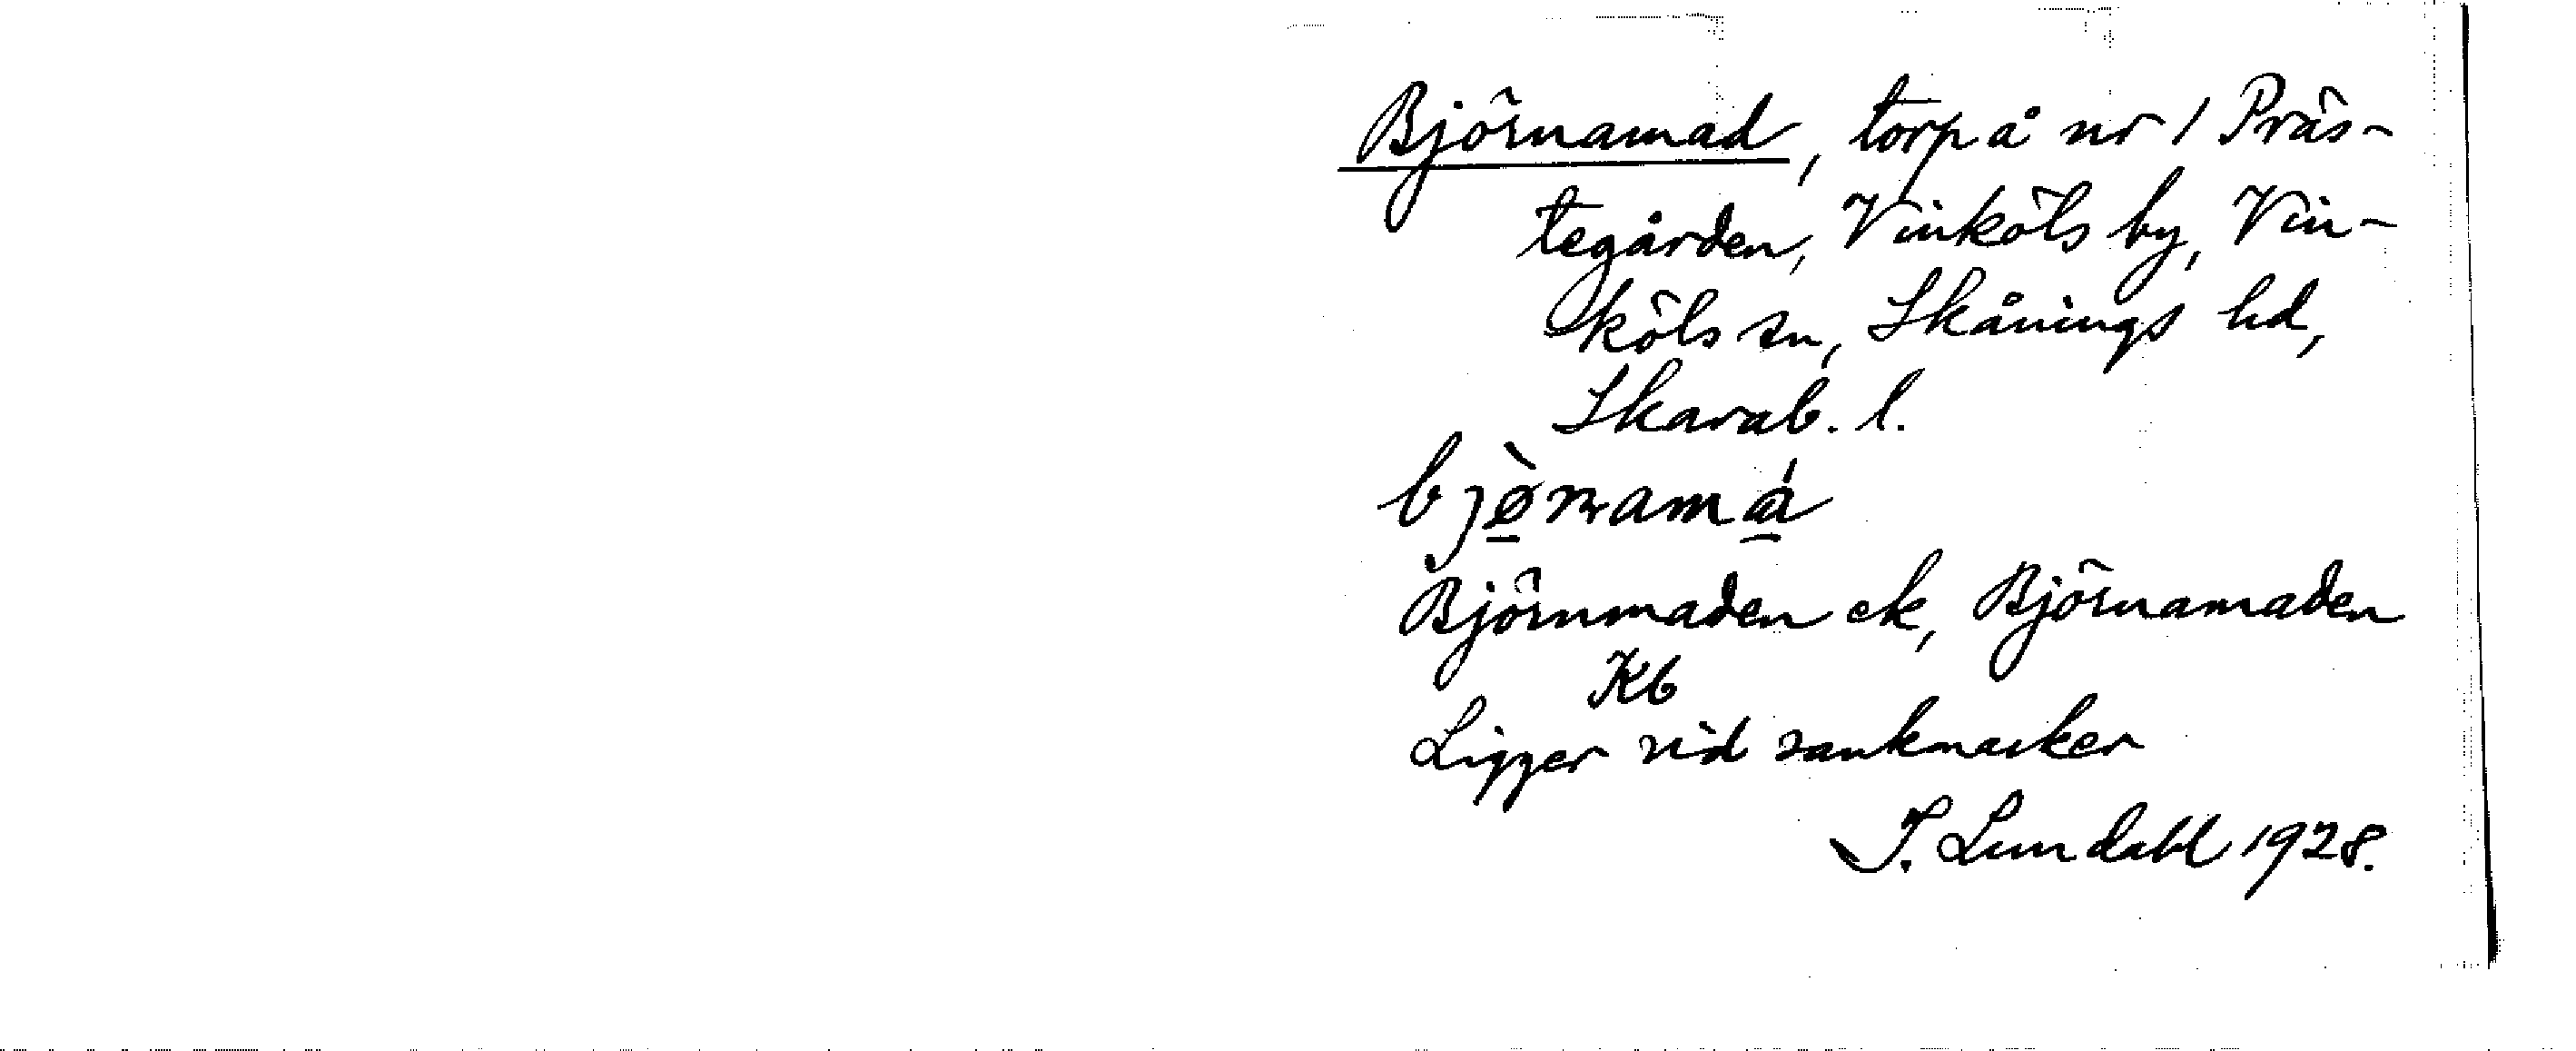 Björnamad, torp å nr 1 Präs-
tegården, Vinköls by, Vin-
köls sn, Skånings hd,
Skarab. l.
bjø̀ɳamá
Björnmaden ek, Björnamaden
Kb
Ligger vid sankmarker
I. Lundahl 1928.